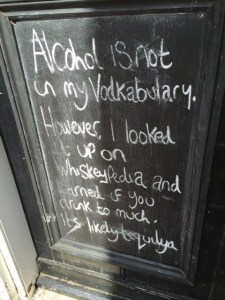 Alcohol is not
in my Vodkabulary.
However, I looked
it up on
whiskeypedia and
learned if you
drink to much.
it's likely tequilya